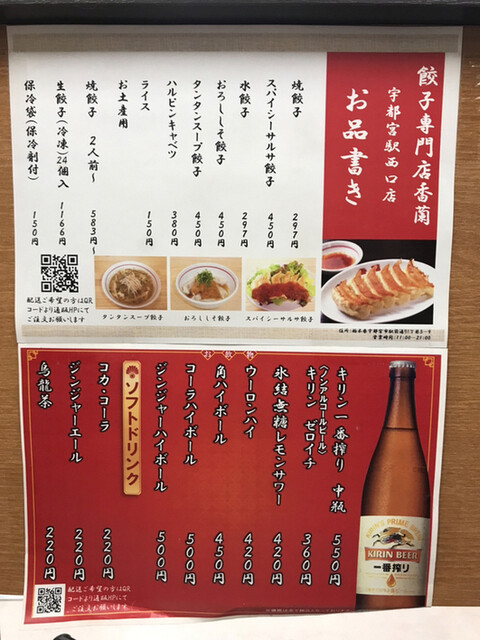 餃子専門店香蘭
宇都宮駅西口店
お品書き
焼餃子 297円
スパイシーサルサ餃子 450円
水餃子 297円
おろししそ餃子 450円
タンタンスープ餃子 450円
ハルビンキャベツ 380円
ライス 150円
お土産用
焼餃子 2人前〜 583円〜
生餃子(冷凍)24個入 1166円
保冷袋(保冷剤付) 150円
配送ご希望の方はQR
コードより通販HPにて
ご注文お願いします
タンタンスープ餃子
おろししそ餃子
スパイシーサルサ餃子
営業時間:11:00-21:00
お飲物
キリン一番搾り 中瓶 550円
(ノンアルコールビール)
キリン ゼロイチ 360円
氷結無糖レモンサワー 420円
ウーロンハイ 420円
角ハイボール 450円
コーラハイボール 500円
ジンジャーハイボール 500円
ソフトドリンク
コカ・コーラ 220円
ジンジャーエール 220円
烏龍茶 220円
配送ご希望の方はQR
コードより通販HPにて
ご注文お願いします
KIRIN'S PRIME BREW
KIRIN BEER
一番搾り